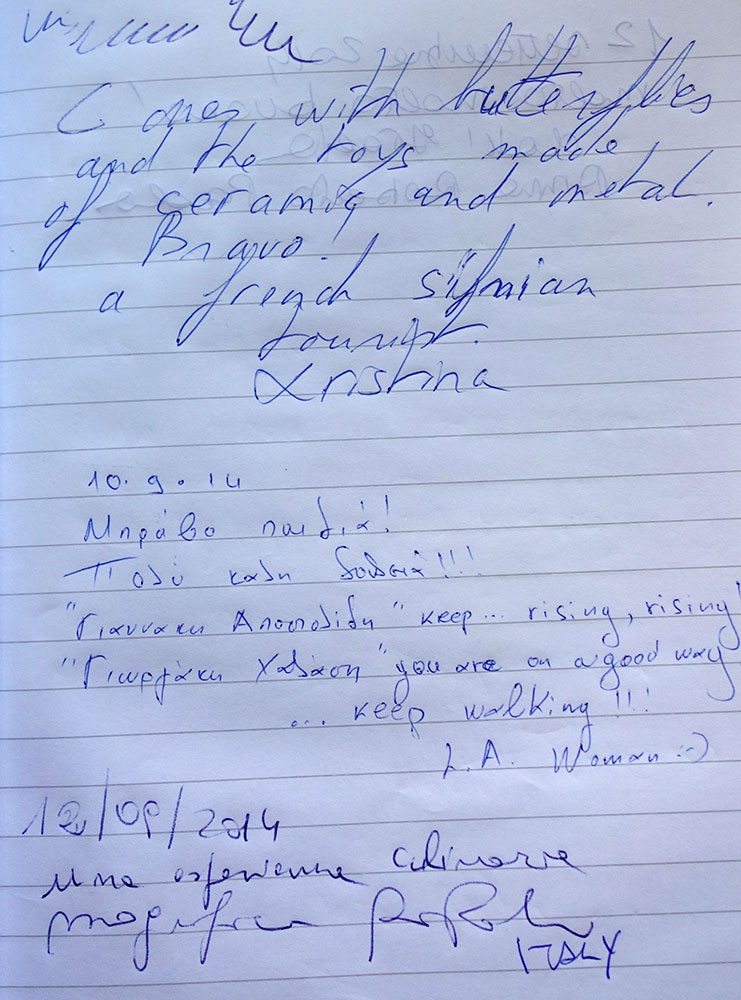 Cones with butterflies
and the toys made
of ceramiq and metal.
Bravo!
a french sifnian
tourist.
Xristina
10.9.14
Μπράβο παιδιά!
Πολύ καλή δουλειά!!!
"Γιαννάκη Αποστολίδη" keep... rising, rising!
"Γιωργάκη Χαλάση" you are on a good way
... keep walking!!!
L.A. Woman :-)
12/09/2014
Una esperienza culinaria
magnifica
ITALY